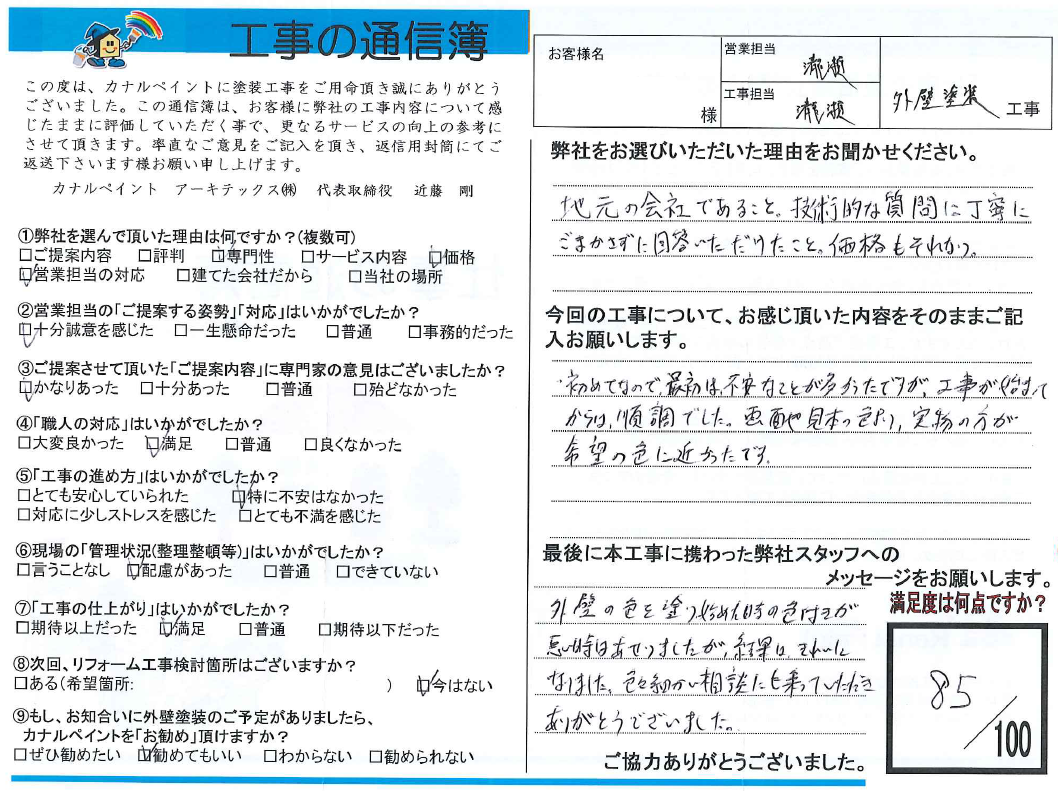 工事の通信簿
この度は、カナルペイントに塗装工事をご用命頂き誠にありがとう
ございました。この通信簿は、お客様に弊社の工事内容について感
じたままに評価していただく事で、更なるサービスの向上の参考に
させて頂きます。率直なご意見をご記入を頂き、返信用封筒にてご
返送下さいます様お願い申し上げます。
カナルペイント アーキテックス㈱ 代表取締役 近藤 剛
①弊社を選んで頂いた理由は何ですか？(複数可)
□ご提案内容 □評判 □専門性 □サービス内容 □価格
□営業担当の対応 □建てた会社だから □当社の場所
②営業担当の「ご提案する姿勢」「対応」はいかがでしたか？
□十分誠意を感じた □一生懸命だった □普通 □事務的だった
③ご提案させて頂いた「ご提案内容」に専門家の意見はございましたか？
□かなりあった □十分あった □普通 □殆どなかった
④「職人の対応」はいかがでしたか？
□大変良かった □満足 □普通 □良くなかった
⑤「工事の進め方」はいかがでしたか？
□とても安心していられた □特に不安はなかった
□対応に少しストレスを感じた □とても不満を感じた
⑥現場の「管理状況(整理整頓等)」はいかがでしたか？
□言うことなし □配慮があった □普通 □できていない
⑦「工事の仕上がり」はいかがでしたか？
□期待以上だった □満足 □普通 □期待以下だった
⑧次回、リフォーム工事検討箇所はございますか？
□ある(希望箇所: ) □今はない
⑨もし、お知合いに外壁塗装のご予定がありましたら、
カナルペイントを「お勧め」頂けますか？
□ぜひ勧めたい □勧めてもいい □わからない □勧められない
お客様名 様
営業担当 瀧瀬
工事担当 瀧瀬
外壁塗装 工事
弊社をお選びいただいた理由をお聞かせください。
地元の会社であること。技術的な質問に丁寧に
ごまかさずに回答いただけたこと。価格もそれなり。
今回の工事について、お感じ頂いた内容をそのままご記
入お願いします。
・初めてなので、最初は不安なことが多かったですが、工事が始まって
からは、順調でした。画面や見本の色より、実物の方が
希望の色に近かったです。
最後に本工事に携わった弊社スタッフへの
メッセージをお願いします。
外壁の色を塗り始めた時の色はそが
悪い時はあせりましたが、結果は、きれいに
なりました。色々細かい相談にも乗っていただき
ありがとうございました。
満足度は何点ですか？
85/100
ご協力ありがとうございました。